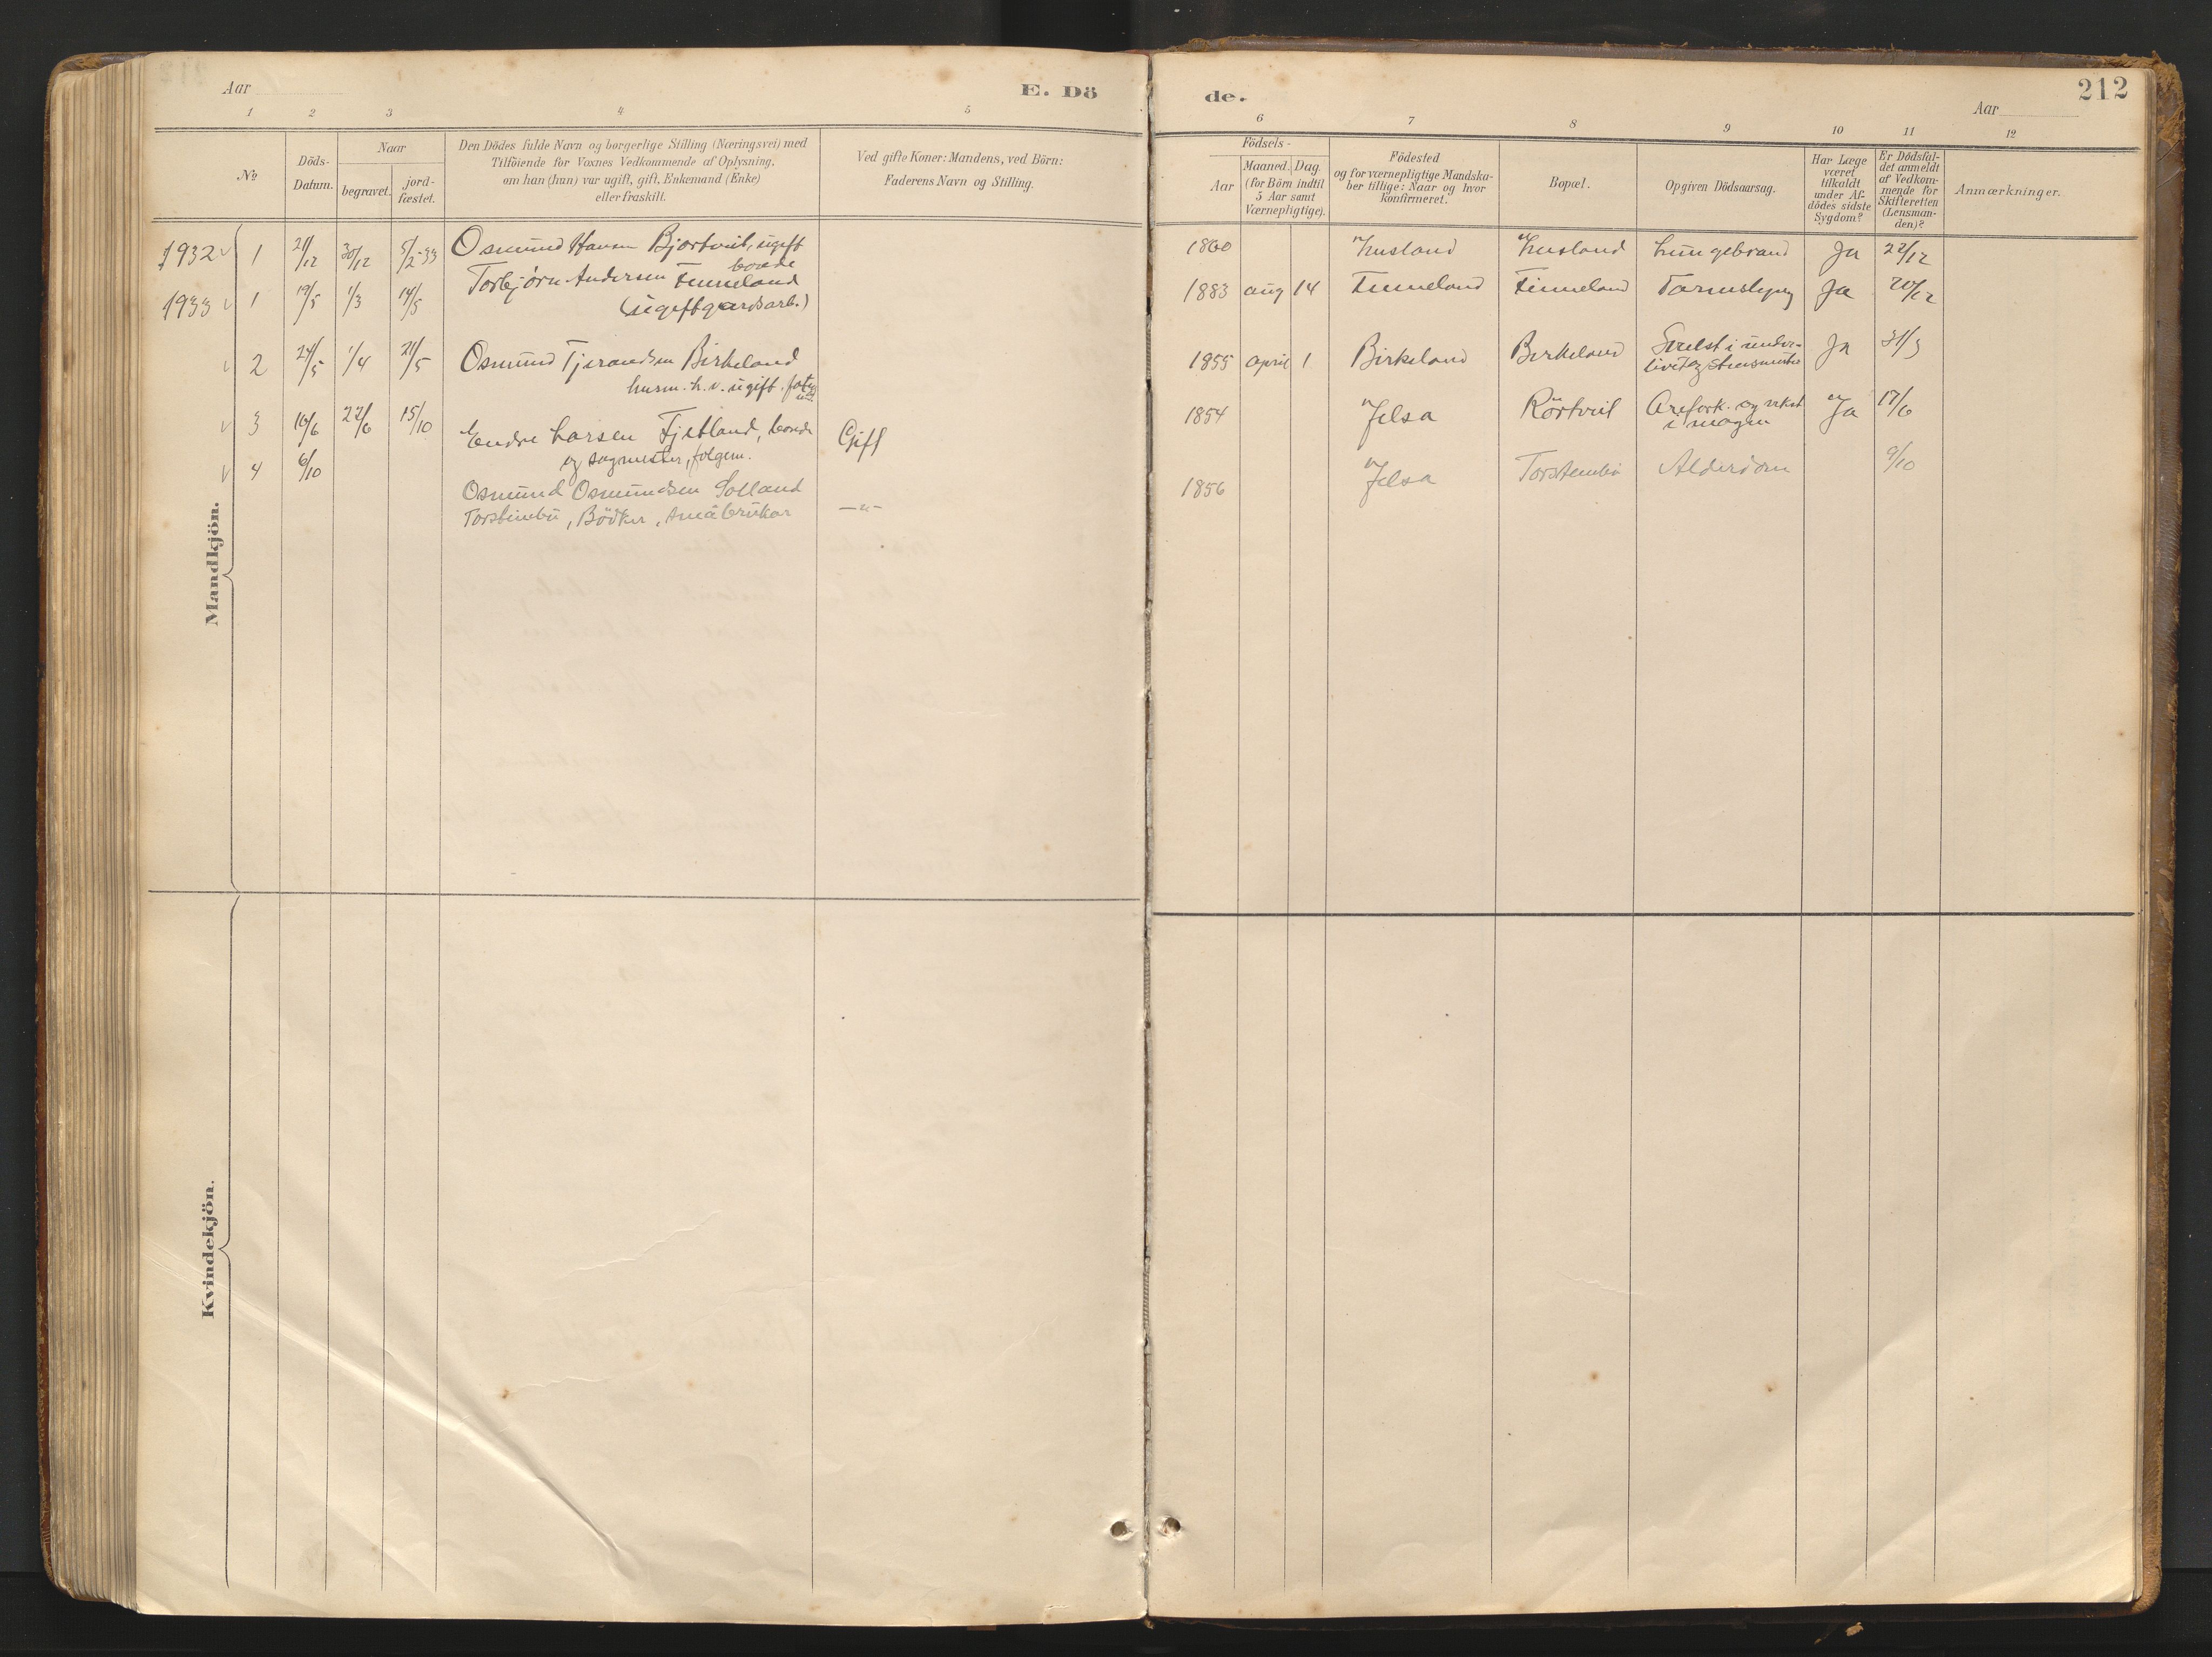 Aar
E. Dö
de.
Aar
212
1 2 3 4 5
6 7 8 9 10 11 12
No
Döds-
Datum.
Naar
begravet.
jord-
fæstet.
Den Dödes fulde Navn og borgerlige Stilling (Næringsvei) med
Tilföiende for Voxnes Vedkommende af Oplysning,
om han (hun) var ugift, gift, Enkemand (Enke)
eller fraskilt.
Ved gifte Koner: Mandens, ved Börn:
Faderens Navn og Stilling.
Födsels-
Aar
Maaned. Dag.
(for Börn indtil
5 Aar samt
Værnepligtige).
Födested
og for værnepligtige Mandska-
ber tillige: Naar og hvor
Konfirmeret.
Bopæl.
Opgiven Dödsaarsag.
Har Læge
været
tilkaldt
under Af-
dödes sidste
Sygdom?
Er Dödsfal-
det anmeldt
af Vedkom-
mende for
Skifteretten
(Lensman-
den)?
Anmærkninger.
1932 1 21/12 30/12 5/2-33 Osmund Hansen Bjortveit, ugift
bonde
1860 Husland Husland Lungebrand Ja 22/12
1933 1 19/5 1/3 14/5 Torbjørn Andersen Finneland
(ugift gardsarb.)
1883 aug 14 Finneland Finneland Ja 20/12
2 24/5 1/4 21/5 Osmund Tjerandsen Birkeland
husm. h. v. ugift.
1855 april 1 Birkeland Birkeland Svulst i under-
livet og Ja 31/3
3 16/6 22/6 15/10 Endre Larsen Tjetland, bonde
og sagmester, folgem.
Gift
1854 Jelsa Rörtveit Arefork. og vekst
i magen Ja 17/6
4 6/10 Osmund Osmundsen Solland
Torsteinbu, Bödker, småbrukar
—"—
1856 Jelsa Torsteinbu Alderdom 9/10
Mandkjön.
Kvindekjön.